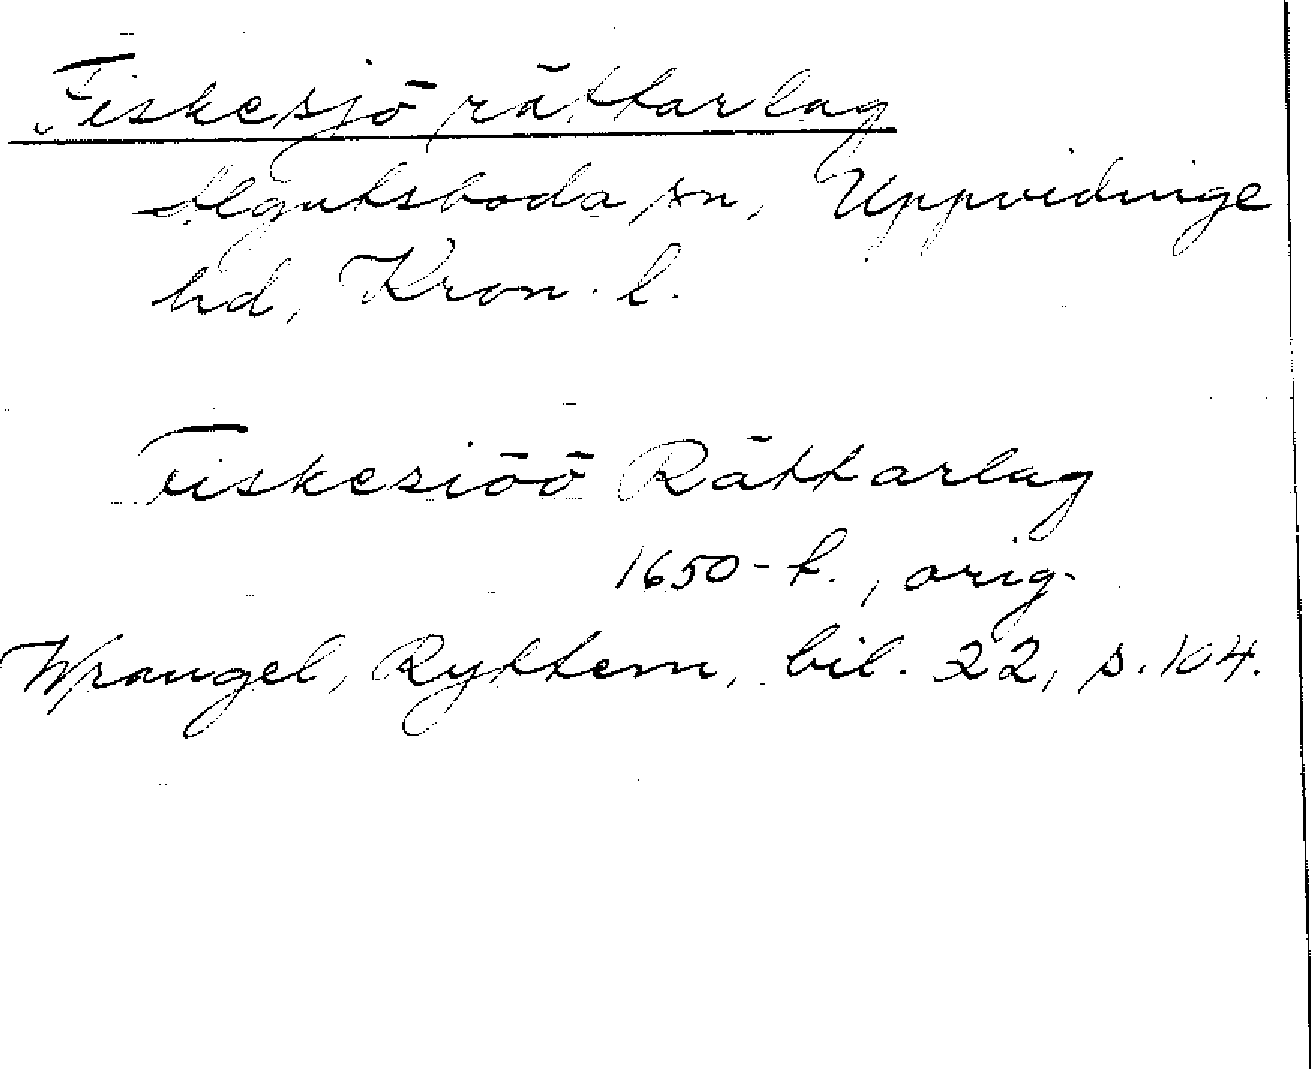 Fiskesjö rättarlag
Algutsboda sn, Uppvidinge
hd, Kron. l.
Fiskesiöö Rättarlag
1650-t., orig.
Wrangel, Ryttern, bil. 22, s. 104.